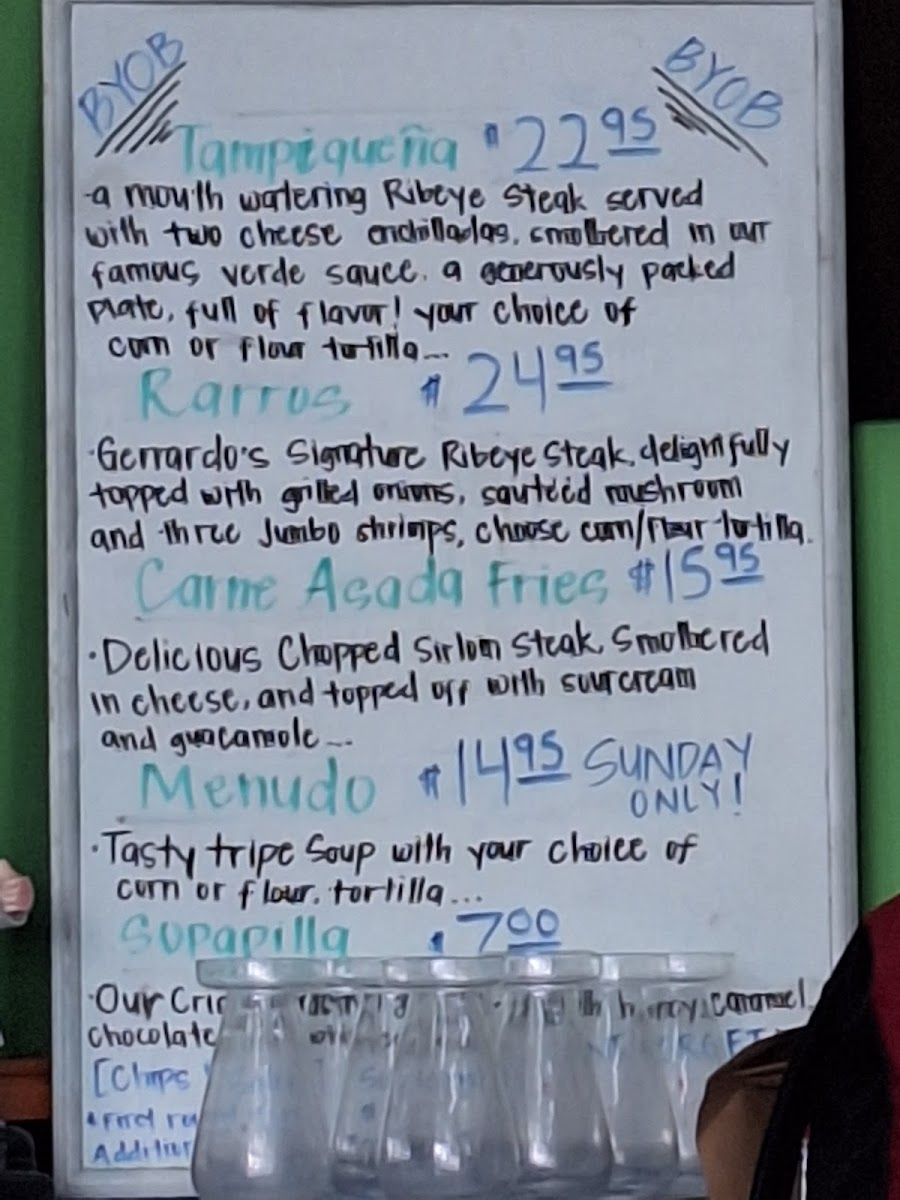 BYOB BYOB
Tampiqueña $22.95
·a mouth watering Ribeye Steak served
with two cheese enchilladas, smothered in our
famous verde sauce. a generously packed
plate, full of flavor! your choice of
corn or flour tortilla...
Rarros $24.95
·Gerrardo's Signature Ribeye Steak, delightfully
topped with grilled onions, sauteéd mushroom
and three Jumbo shrimps, choose corn/flour tortilla.
Carne Asada Fries $15.95
·Delicious Chopped Sirloin Steak, Smothered
in cheese, and topped off with sourcream
and guacamole...
Menudo $14.95 SUNDAY
ONLY!
·Tasty tripe Soup with your choice of
corn or flour, tortilla...
Sopapilla $7.00
·Our caramel
chocolate
[Chips